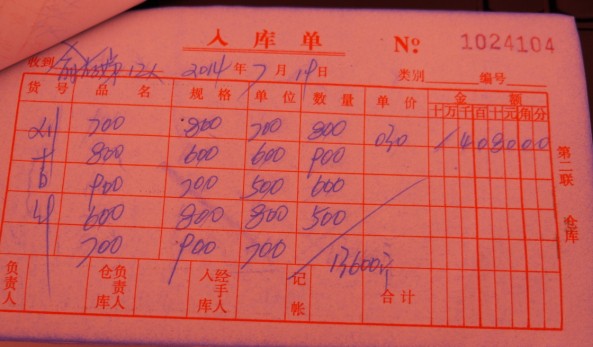 入库单 № 1024104
收到 12人 2014年7月19日 类别 编号
货号 品名 规格 单位 数量 单价 金额
十万千百十元角分
700 800 700 800 030 408000
800 600 600 900
900 700 500 600
600 800 800 500
700 900 700 13600
负责人 仓库负责人 入库经手人 记帐 合计
第二联 仓库